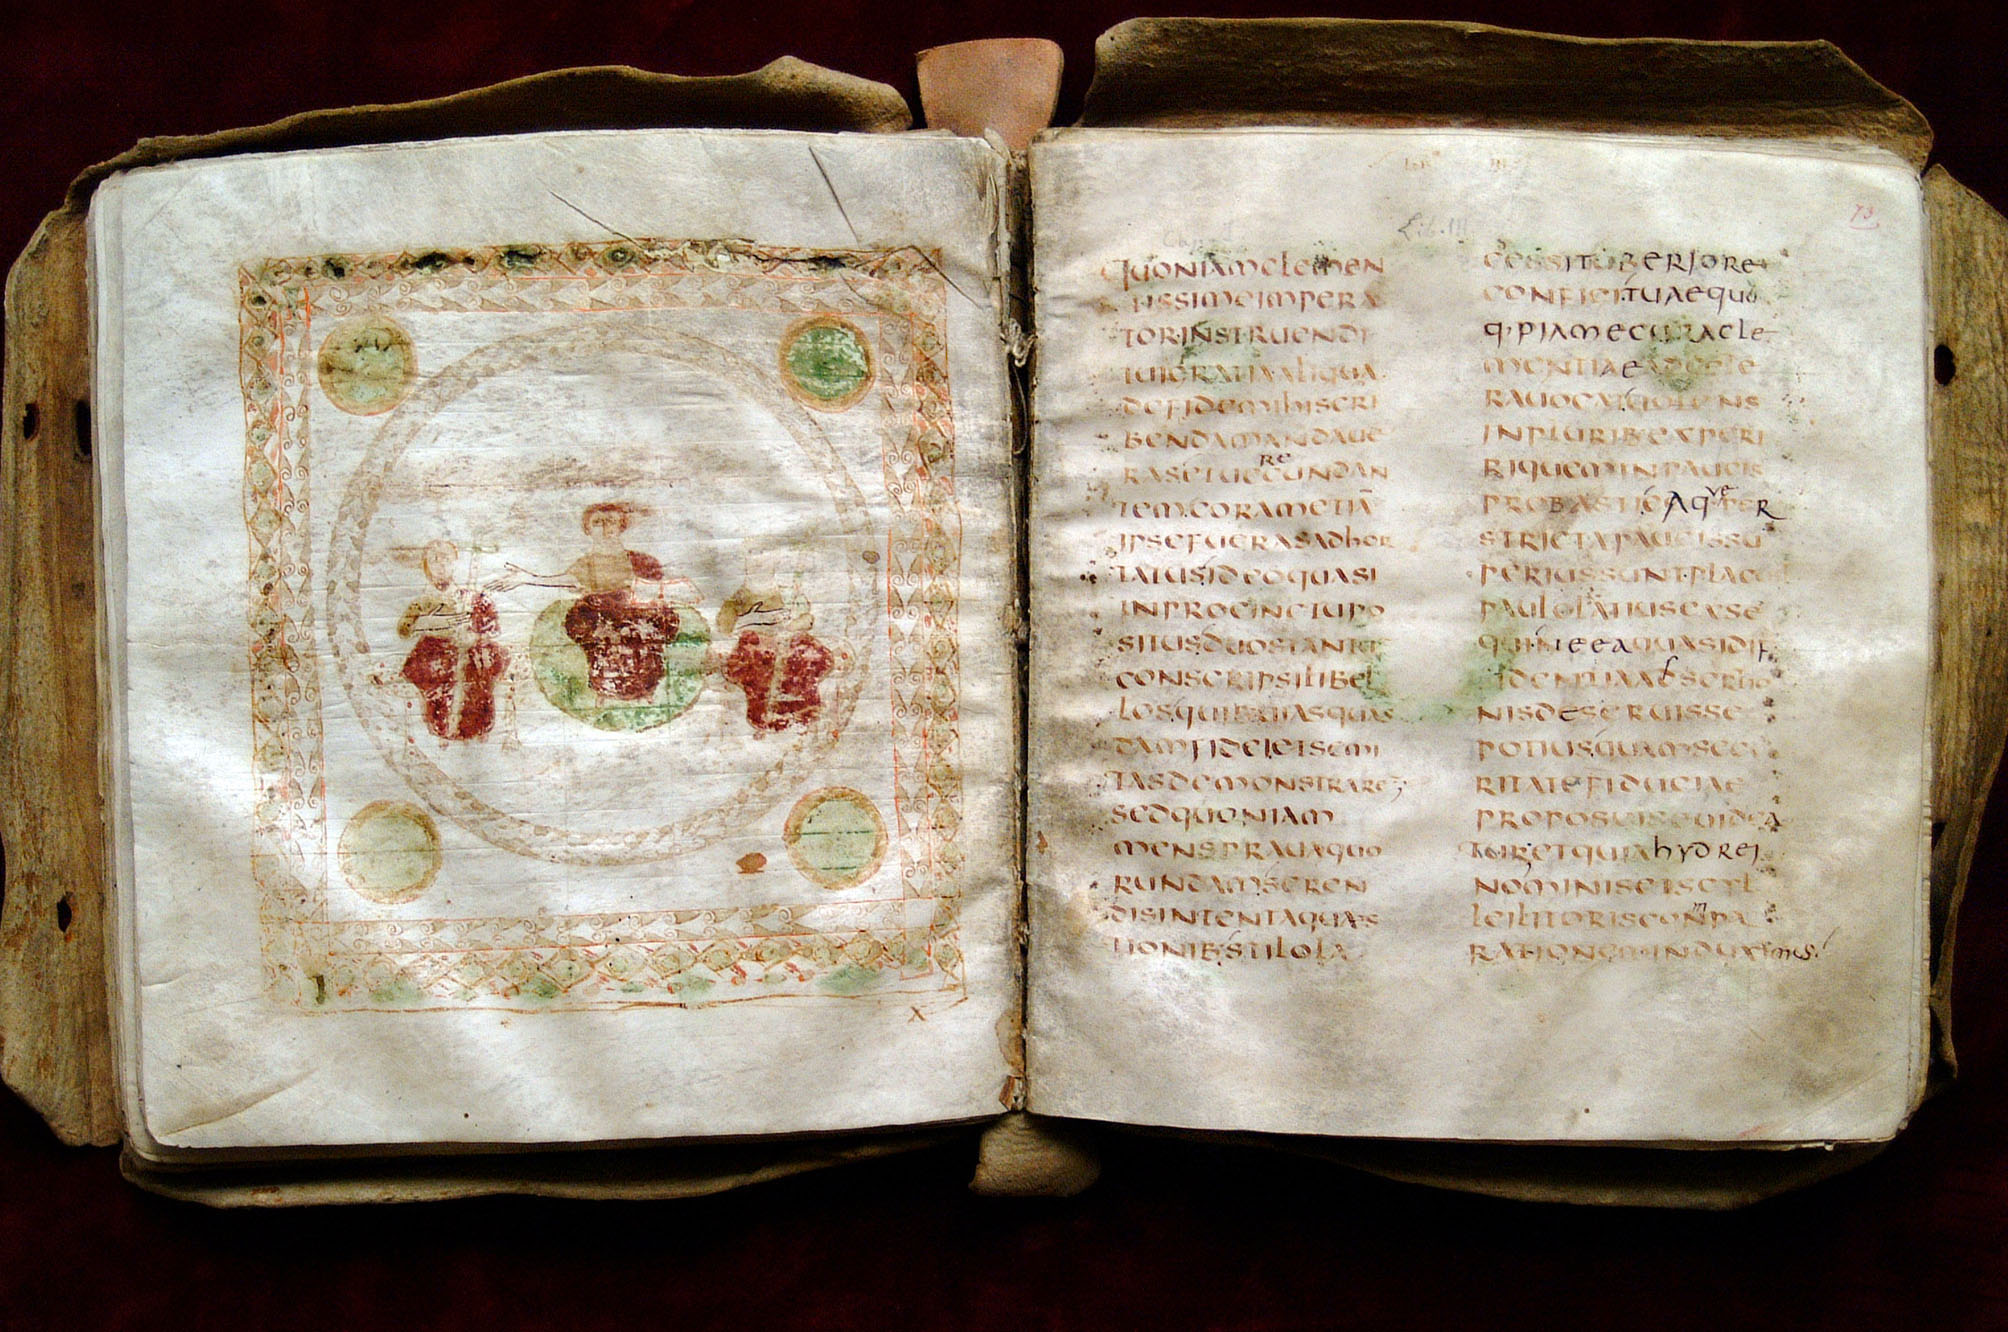 LIB III
73
Lib. III
QUONIAMCLEMEN
TISSIMEIMPERA
TORINSTRUENDI
TUIGRATIAALIQUA
DEFIDEMIHISCRI
BENDAMANDAUE
RASETUECUNDAN
RE
TEMCORAMETIĀ
IPSEFUERASADHOR
TATUSIDEOQUASI
INPROCINCTUPO
SITUSDUOSTANTŪ
CONSCRIPSILIBEL
LOSQUIBUIASQUAS
DAMFIDEIETSEMI
TASDEMONSTRARE
SEDQUONIAM
MENSPRAUAQUO
RUNDAMSEREN
DISINTENTAQUAES
TIONIBSTILOLA
CESSITUBERIORE
CONFICITUAEQUO
Q;PIAMECURACLE
MENTIAEADCETE
RAUOCATUOLENS
INPLURIBEXPERI
RIQUEMINPAUCIS
PROBASTIEAQUEPER
STRICTAPAUCISSU
PERIUSSUNTPLACET
PAULOLATIUSEXSE
QUINEEAQUASIDIF
IDENTIAADSERTIO
NISDESERUISSE
POTIUSQUAMSECU
RITATEFIDUCIAE
PROPOSUISSEUIDEA
MURETQUIAHYDREI
NOMINISETSCYL
LEILITORISCONPA
M
RATIONEMINDUXIMUS
X